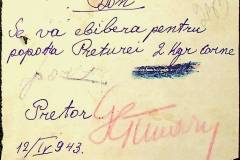 Bon
Se va elibera pentru
popota Preturei 2 kgr carne
porc
Pretor
12/IX 943.